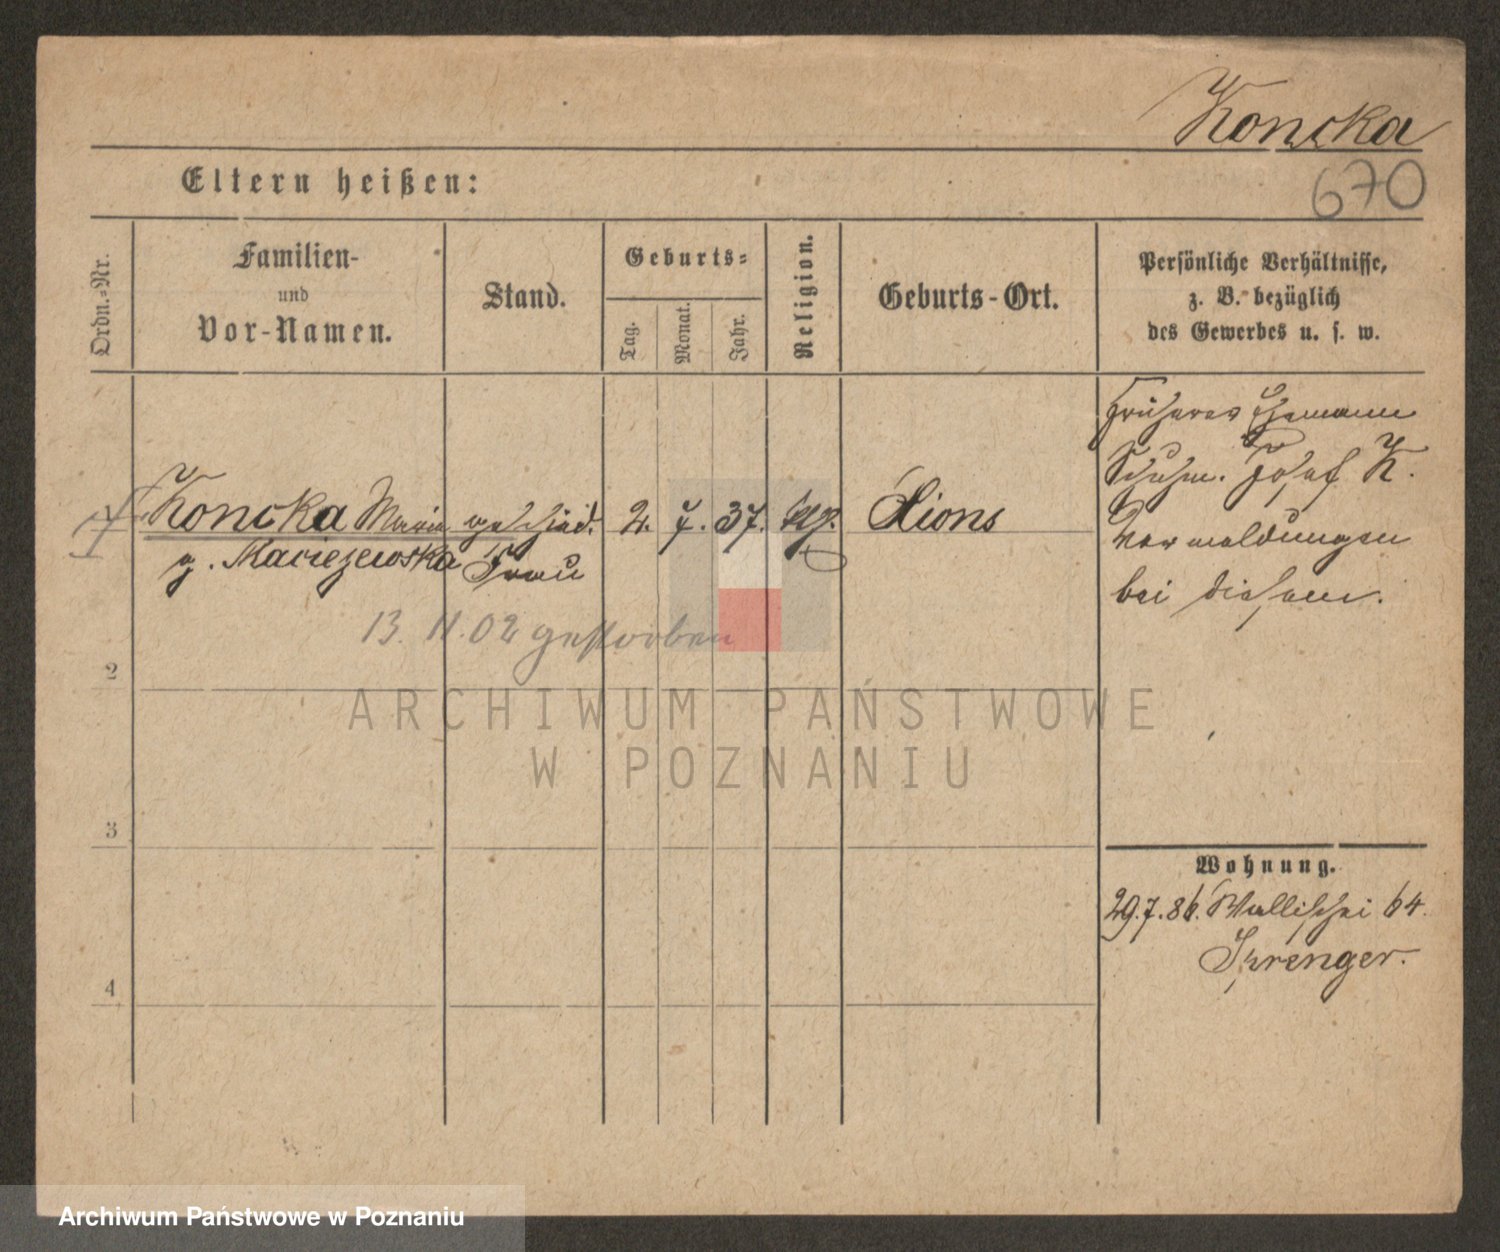 Koncka
670
Eltern heißen:
Ordn.-Nr.
Familien-
und
Vor-Namen.
Stand.
Geburts-
Tag.
Monat.
Jahr.
Religion.
Geburts-Ort.
Persönliche Verhältnisse,
z. B. bezüglich
des Gewerbes u. s. w.
Früherer Ehemann
Schuhm. Josef K.
Vermeldungen
bei diesem.
1 Koncka Marie geschied. 2. 7. 37. Xions
g. Maciejewska Frau
13. 11. 02 gestorben
2
3
4
Wohnung.
29.7.86. Wallischei 64.
Sprenger.
ARCHIWUM PAŃSTWOWE
W POZNANIU
Archiwum Państwowe w Poznaniu